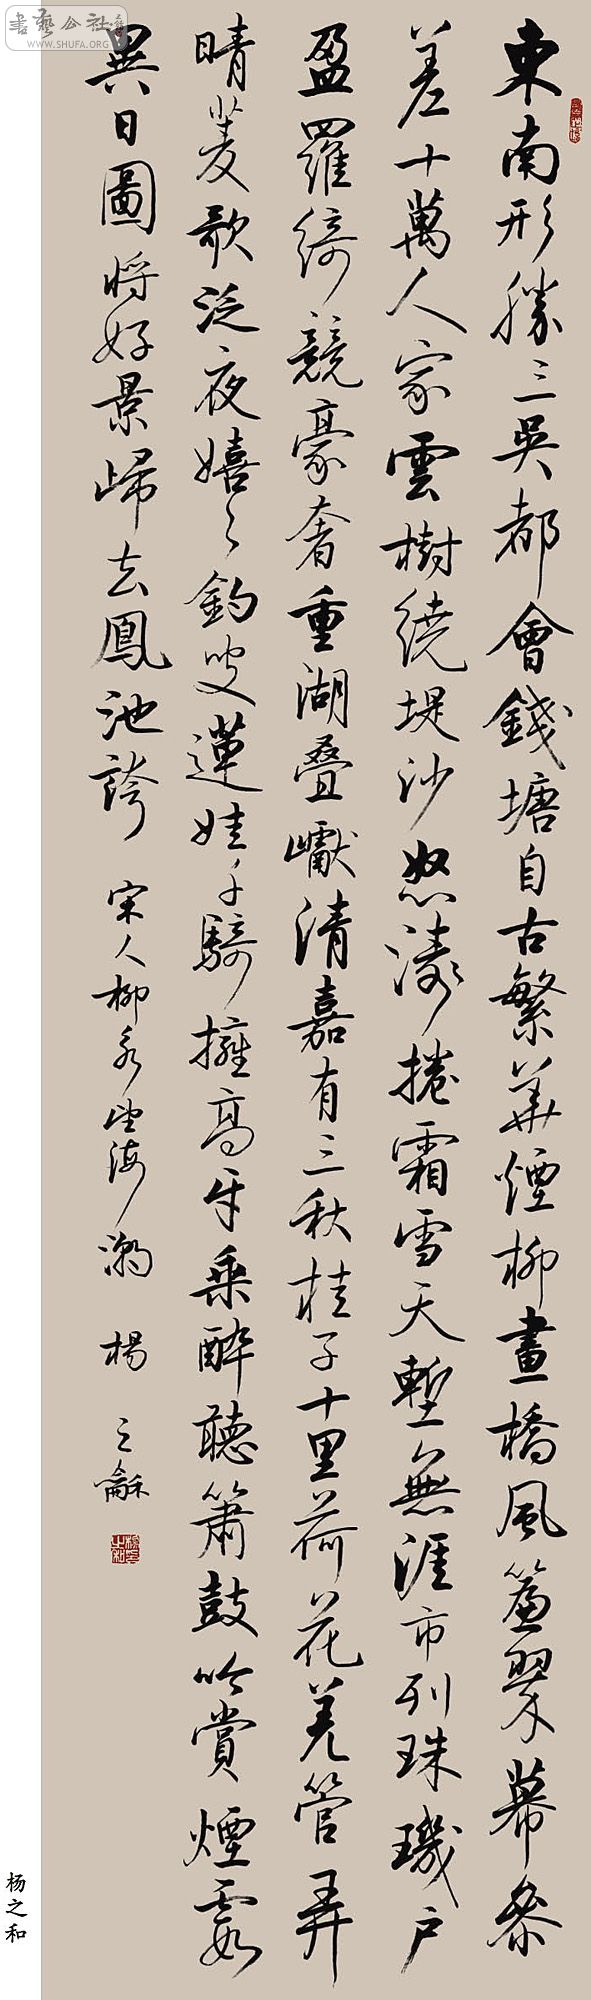 東南形勝三吳都會錢塘自古繁華煙柳畫橋風簾翠幕參
差十萬人家雲樹繞堤沙怒濤捲霜雪天塹無涯市列珠璣戶
盈羅綺競豪奢重湖疊巘清嘉有三秋桂子十里荷花羌管弄
晴菱歌泛夜嬉々釣叟蓮娃千騎擁高牙乘醉聽簫鼓吟賞煙霞
異日圖將好景歸去鳳池誇 宋人柳永望海潮 楊之龢
杨之和
書藝公社
WWW.SHUFA.ORG